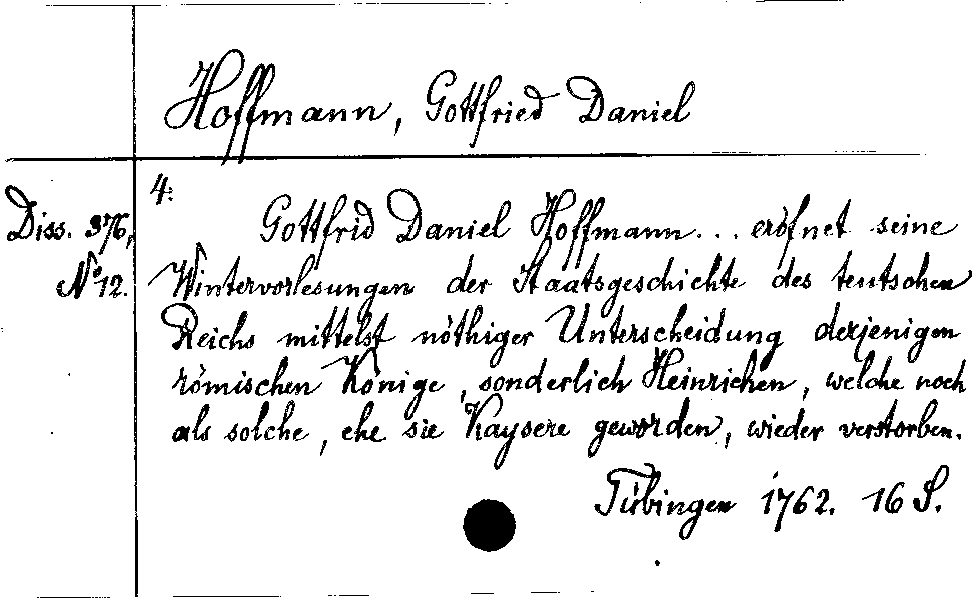 Hoffmann, Gottfried Daniel
Diss. 376,
No 12.
4.
Gottfrid Daniel Hoffmann... eröfnet seine
Wintervorlesungen der Staatsgeschichte des teutschen
Reichs mittelst nöthiger Unterscheidung derjenigen
römischen Könige, sonderlich Heinrichen, welche noch
als solche, ehe sie Kaysere geworden, wieder verstorben.
Tübingen 1762. 16 S.